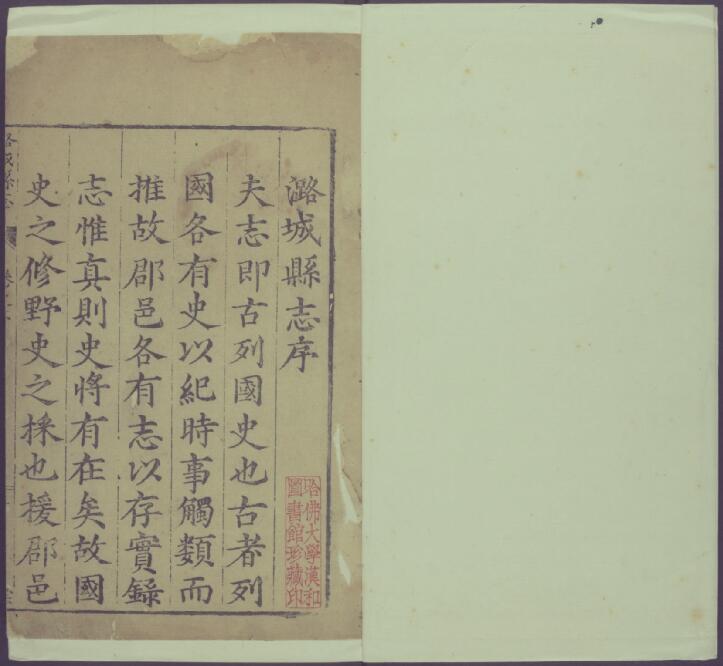 潞城縣志序
夫志即古列國史也古者列
國各有史以紀時事觸類而
推故郡邑各有志以存實錄
志惟真則史將有在矣故國
史之修野史之採也援郡邑
哈佛大學漢和
圖書館珍藏印